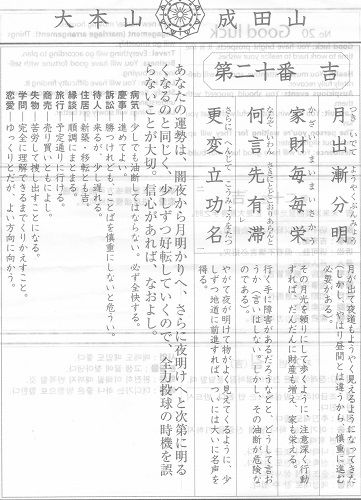 大本山 成田山
第二十番 吉
月出漸分明
つきいでてようやくぶんみょう
家財毎毎栄
かざいまいまいさかう
何言先有滞
なんぞいわんさきにとどこおりありと
更変立功名
さらにへんじてこうみょうをたつ
月が出て、夜道もようやく見えるようになってきた
(しかし、やはり昼間とは違うから、慎重に進む
必要がある)。
その月光を頼りにして歩くように、注意深く行動
すれば、だんだんに財産も増え、家も栄える。
行く手に障害があるだろうなどと、どうして言お
うか(言いはしない。しかし、その油断が危険な
のである)。
やがて夜が明けて物がよく見えてくるように、少
しずつ地道に前進すれば、ついには大いに名声を
得る。
あなたの運勢は、闇夜から月明かりへ、さらに夜明けへと次第に明る
くなるのと同じく、少しずつ好転していくので、全力投球の時機を誤
らないことが大切。信心があれば、なおよし。
病気―少しでも油断してはならない。必ず全快する。
慶事―進めてよい。
訴訟―勝つけれども、ことばを慎重にしないと危うい。
待人―来るが、少し遅れる。
住居―新築・移転とも吉。
縁談―順調にまとまる。
旅行―予定通りに行ける。
商売―売り買いともによし。
失物―苦労して捜し出すことになる。
学問―完全に理解できるまでくりかえすこと。
恋愛―ゆっくりだが、よい方向に向かう。